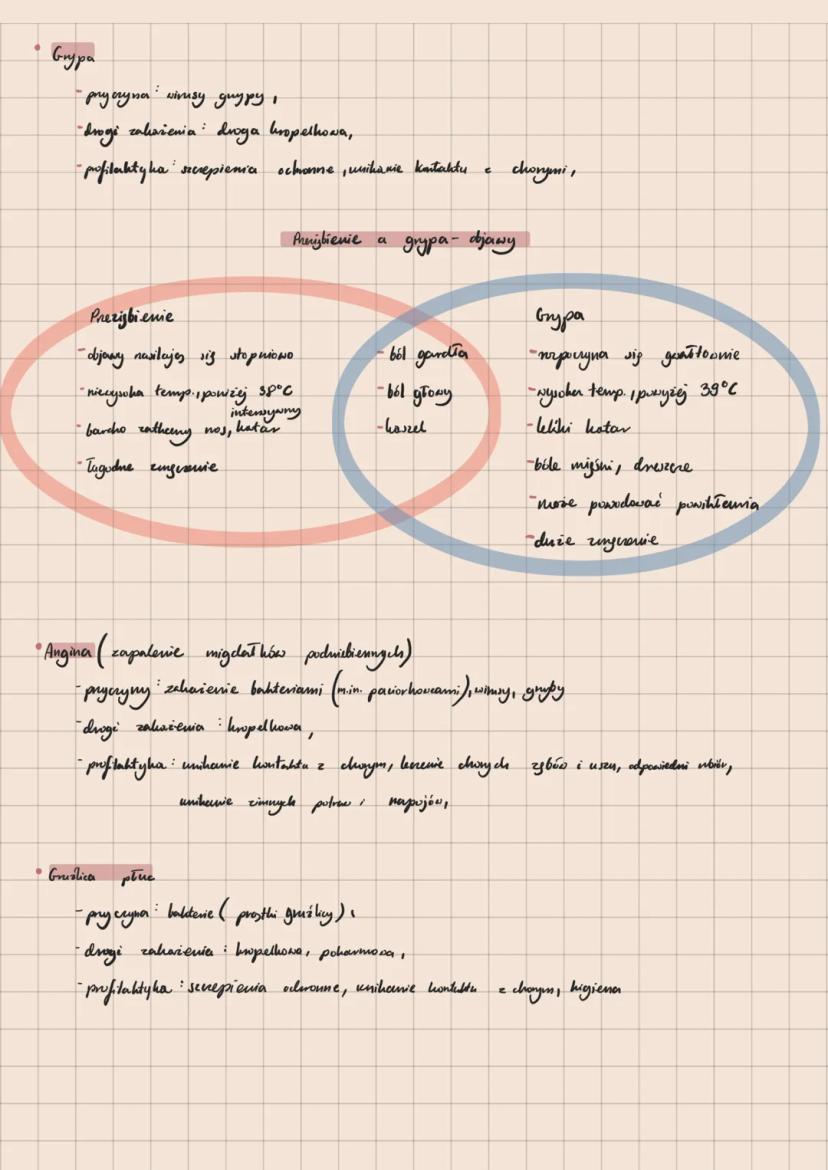 • Grypa
- przyczyna: wirusy grypy,
- drogi zakażenia: droga kropelkowa,
- profilaktyka: szczepienia ochronne, unikanie kontaktu z chorymi,
Przeziębienie a grypa - objawy
Przeziębienie
- objawy nasilają się stopniowo
- niewysoka temp., poniżej 38°C
- bardzo zatkany nos, intensywny katar
- łagodne zmęczenie
- ból gardła
- ból głowy
- kaszel
Grypa
- rozpoczyna się gwałtownie
- wysoka temp., powyżej 39°C
- lekki katar
- bóle mięśni, dreszcze
- może powodować powikłania
- duże zmęczenie
• Angina (zapalenie migdałków podniebiennych)
- przyczyny: zakażenie bakteriami (m.in. paciorkowcami), wirusy, grzyby
- drogi zakażenia: kropelkowa,
- profilaktyka: unikanie kontaktu z chorym, leczenie chorych zębów i uszu, odpowiedni ubiór,
unikanie zimnych potraw i napojów,
• Gruźlica płuc
- przyczyna: bakterie (prątki gruźlicy),
- drogi zakażenia: kropelkowa, pokarmowa,
- profilaktyka: szczepienia ochronne, unikanie kontaktu z chorym, higiena